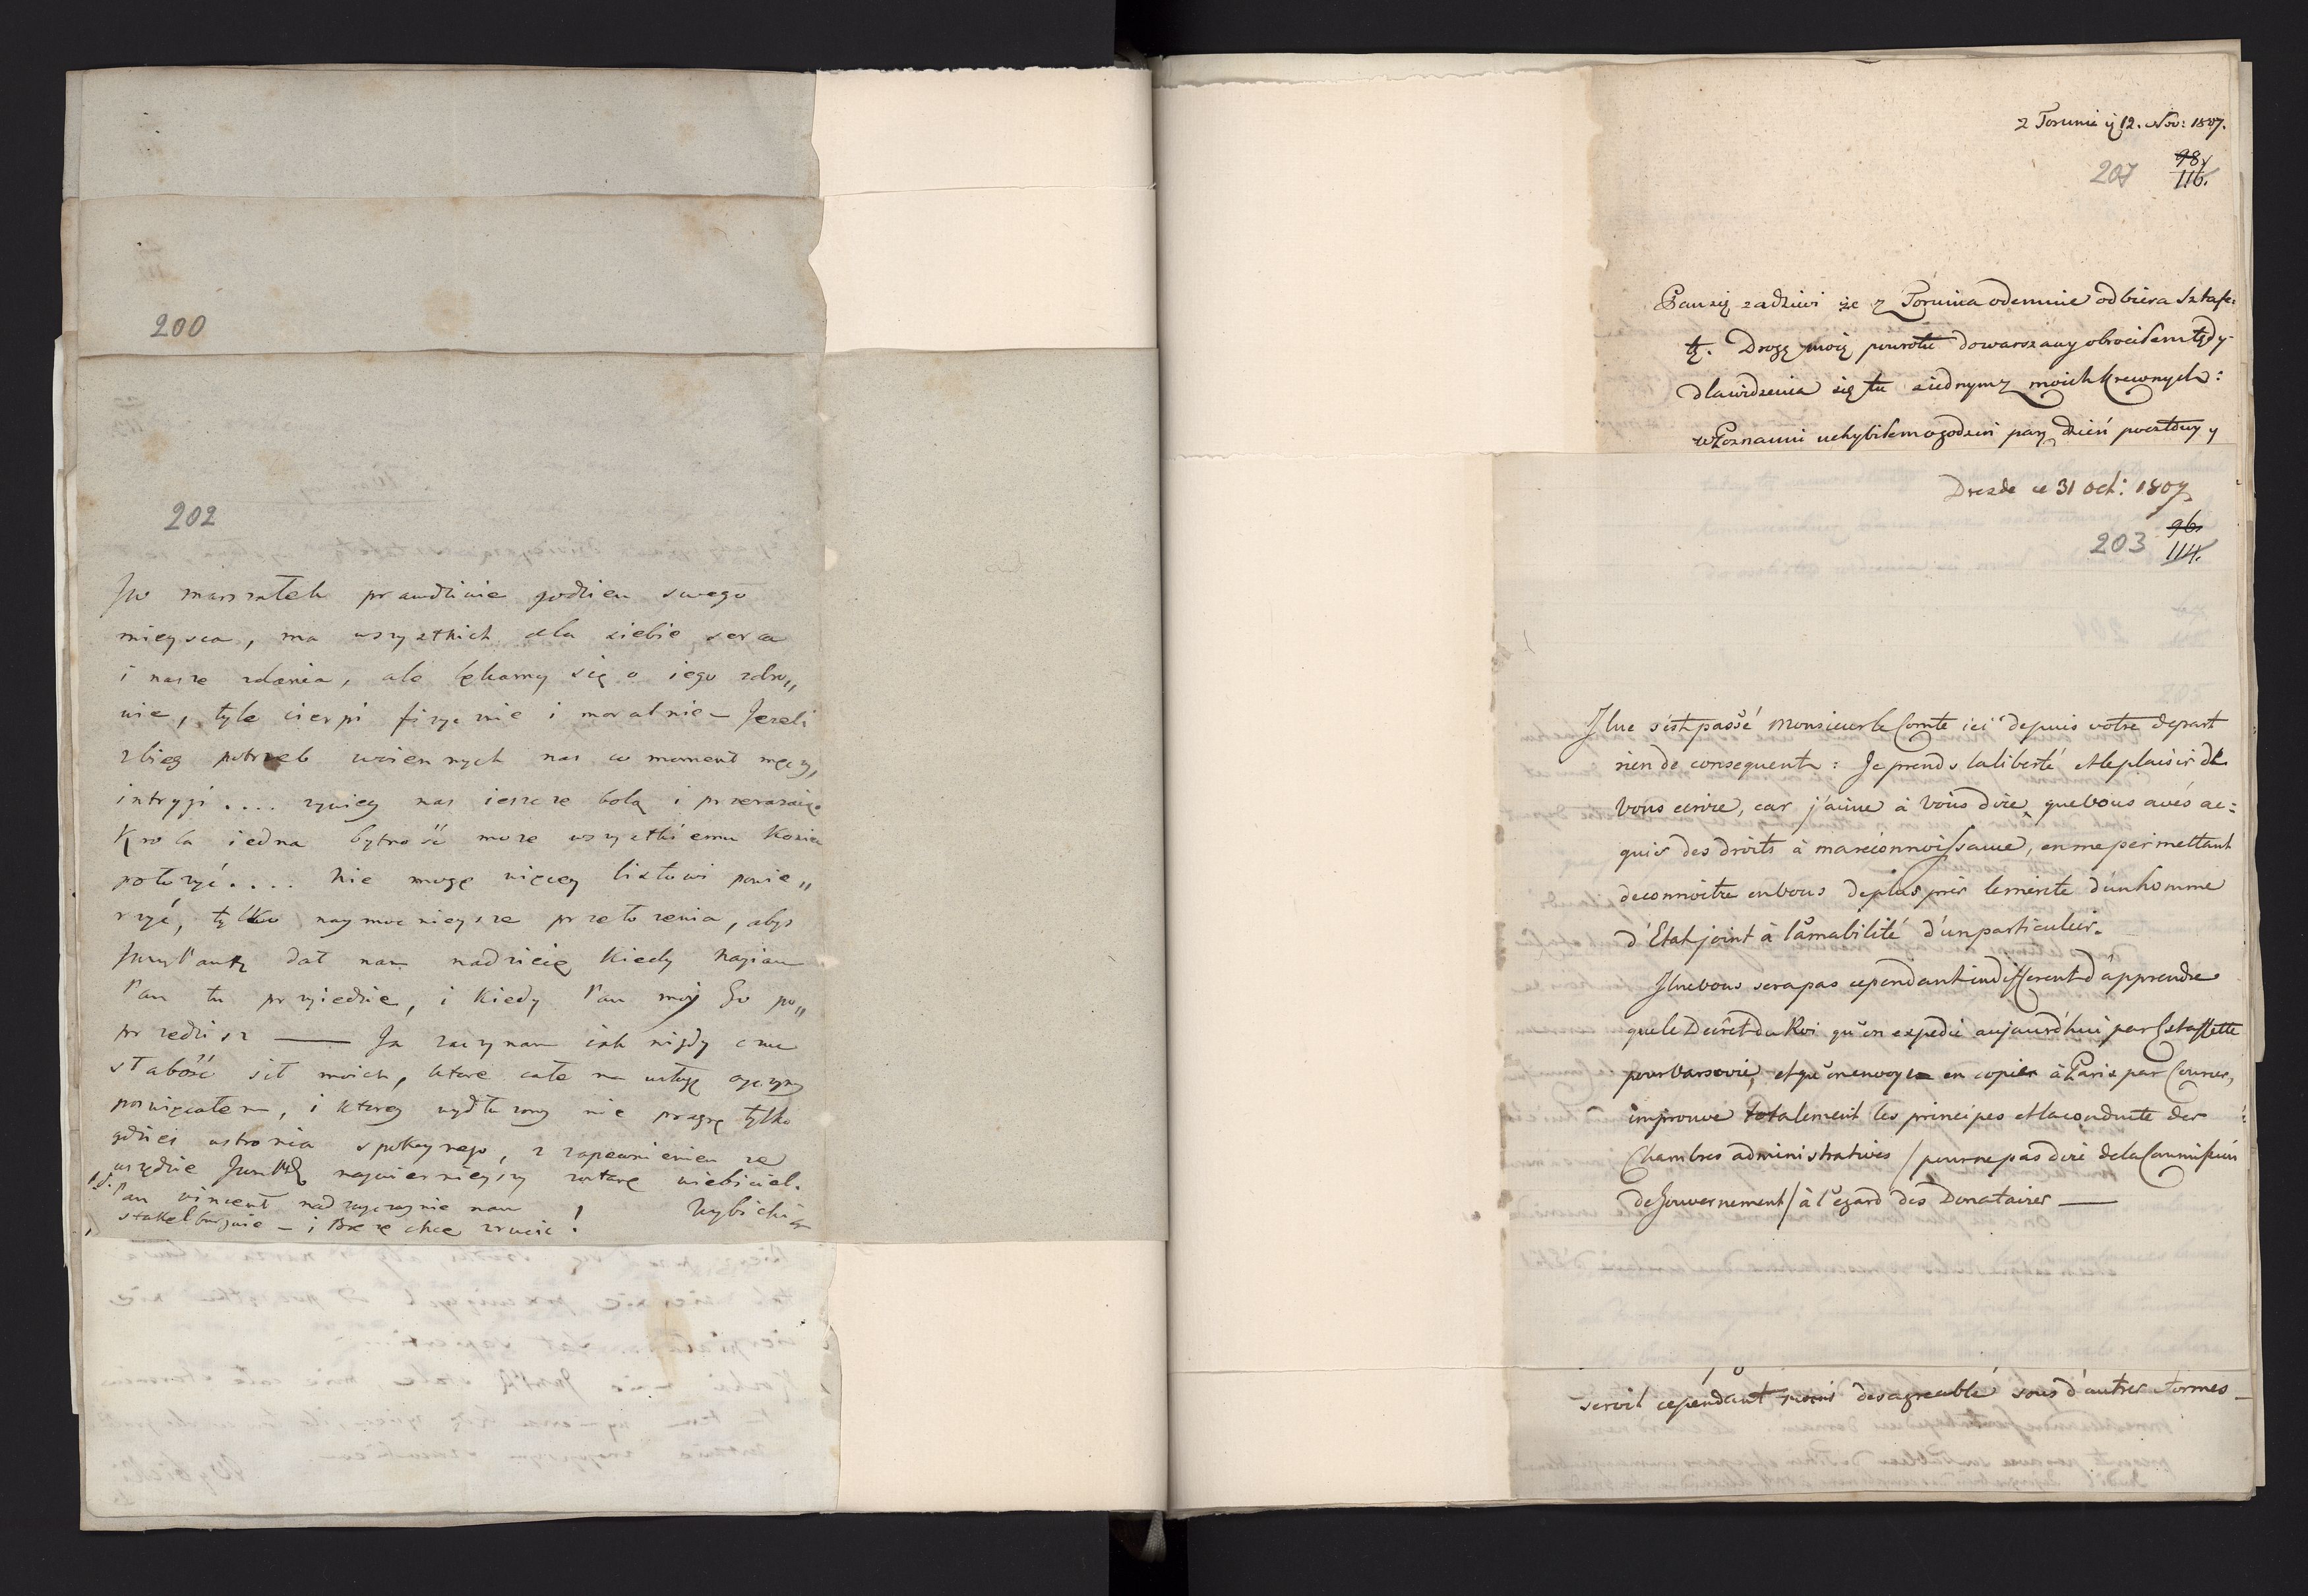 200
202
JW marszałek prawdziwie godzien swego
mieysca, ma wszystkich dla siebie serca
i nasze zdania, ale lękamy się o iego zdro„
wie, tyle cierpi fizycznie i moralnie – Jeżeli
zbieg potrzeb woiennych nas w moment męczy,
intrygi .... żywiey nas ieszcze bolą i przerażaią
Krola iedna bytność może wszystkiemu koniec
położyć .... Nie mogę więcey listowi powie„
rzyć, tylko naymocnieysze przełożenia, abyś
dał nam nadzieię kiedy Nayias
Pan tu przyiedzie, i kiedy Pan moy Go po„
przedzisz —— Ja zaczynam iak nigdy czuć
słabość sił moich, ktore całe na usługę oyczyzny
poswięcałem, i ktorey wysłużony nie pragnę tylko
gdzieś ustronia spokoynego, z zapewnieniem że
wszędzie naywiernieyszy zostanę wielbiciel.
Wybicki
Pan Vincent nadzwyczaynie nam
i Boże chce zrucić !
z Torunia ÿ 12. Nov: 1807.
207
98
116.
Pan się zadziwi że z Torunia odemnie odbiera Sztafe:
tę. Drogę moię powrotu do Warszawy obrocilem tędy
dla widzenia się tu z iednym z moich krewnych:
w Poznaniu uchybilem ogodzin parę dzień pocztowy y
Dresde ce 31 Oct: 1807
203
96.
114.
Il ne s'est passé Monsieur le Comte ici depuis votre depart
rien de consequent : Je prends la liberté et le plaisir de
vous ecrire, car j'aime à vous dire, que vous avés ac:
quis des droits à ma reconnoissance, en me permettant
de connoitre en vous de plus près le merite d'un homme
d'Etat joint à l'amabilité d'un particulier.
Il ne vous sera pas cependant indifferent d'apprendre
que le Decret du Roi qu'on expedie aujourd'hui par Estaffette
pour Varsovie, et qu'on envoye en copie à Paris par Courier,
improuve totalement les principes et la conduite des
Chambres administratives / pour ne pas dire de la Commission
de Gouvernement / à l'egard des Donataires ——
seroit cependant moins desagreable sous d'autres formes –